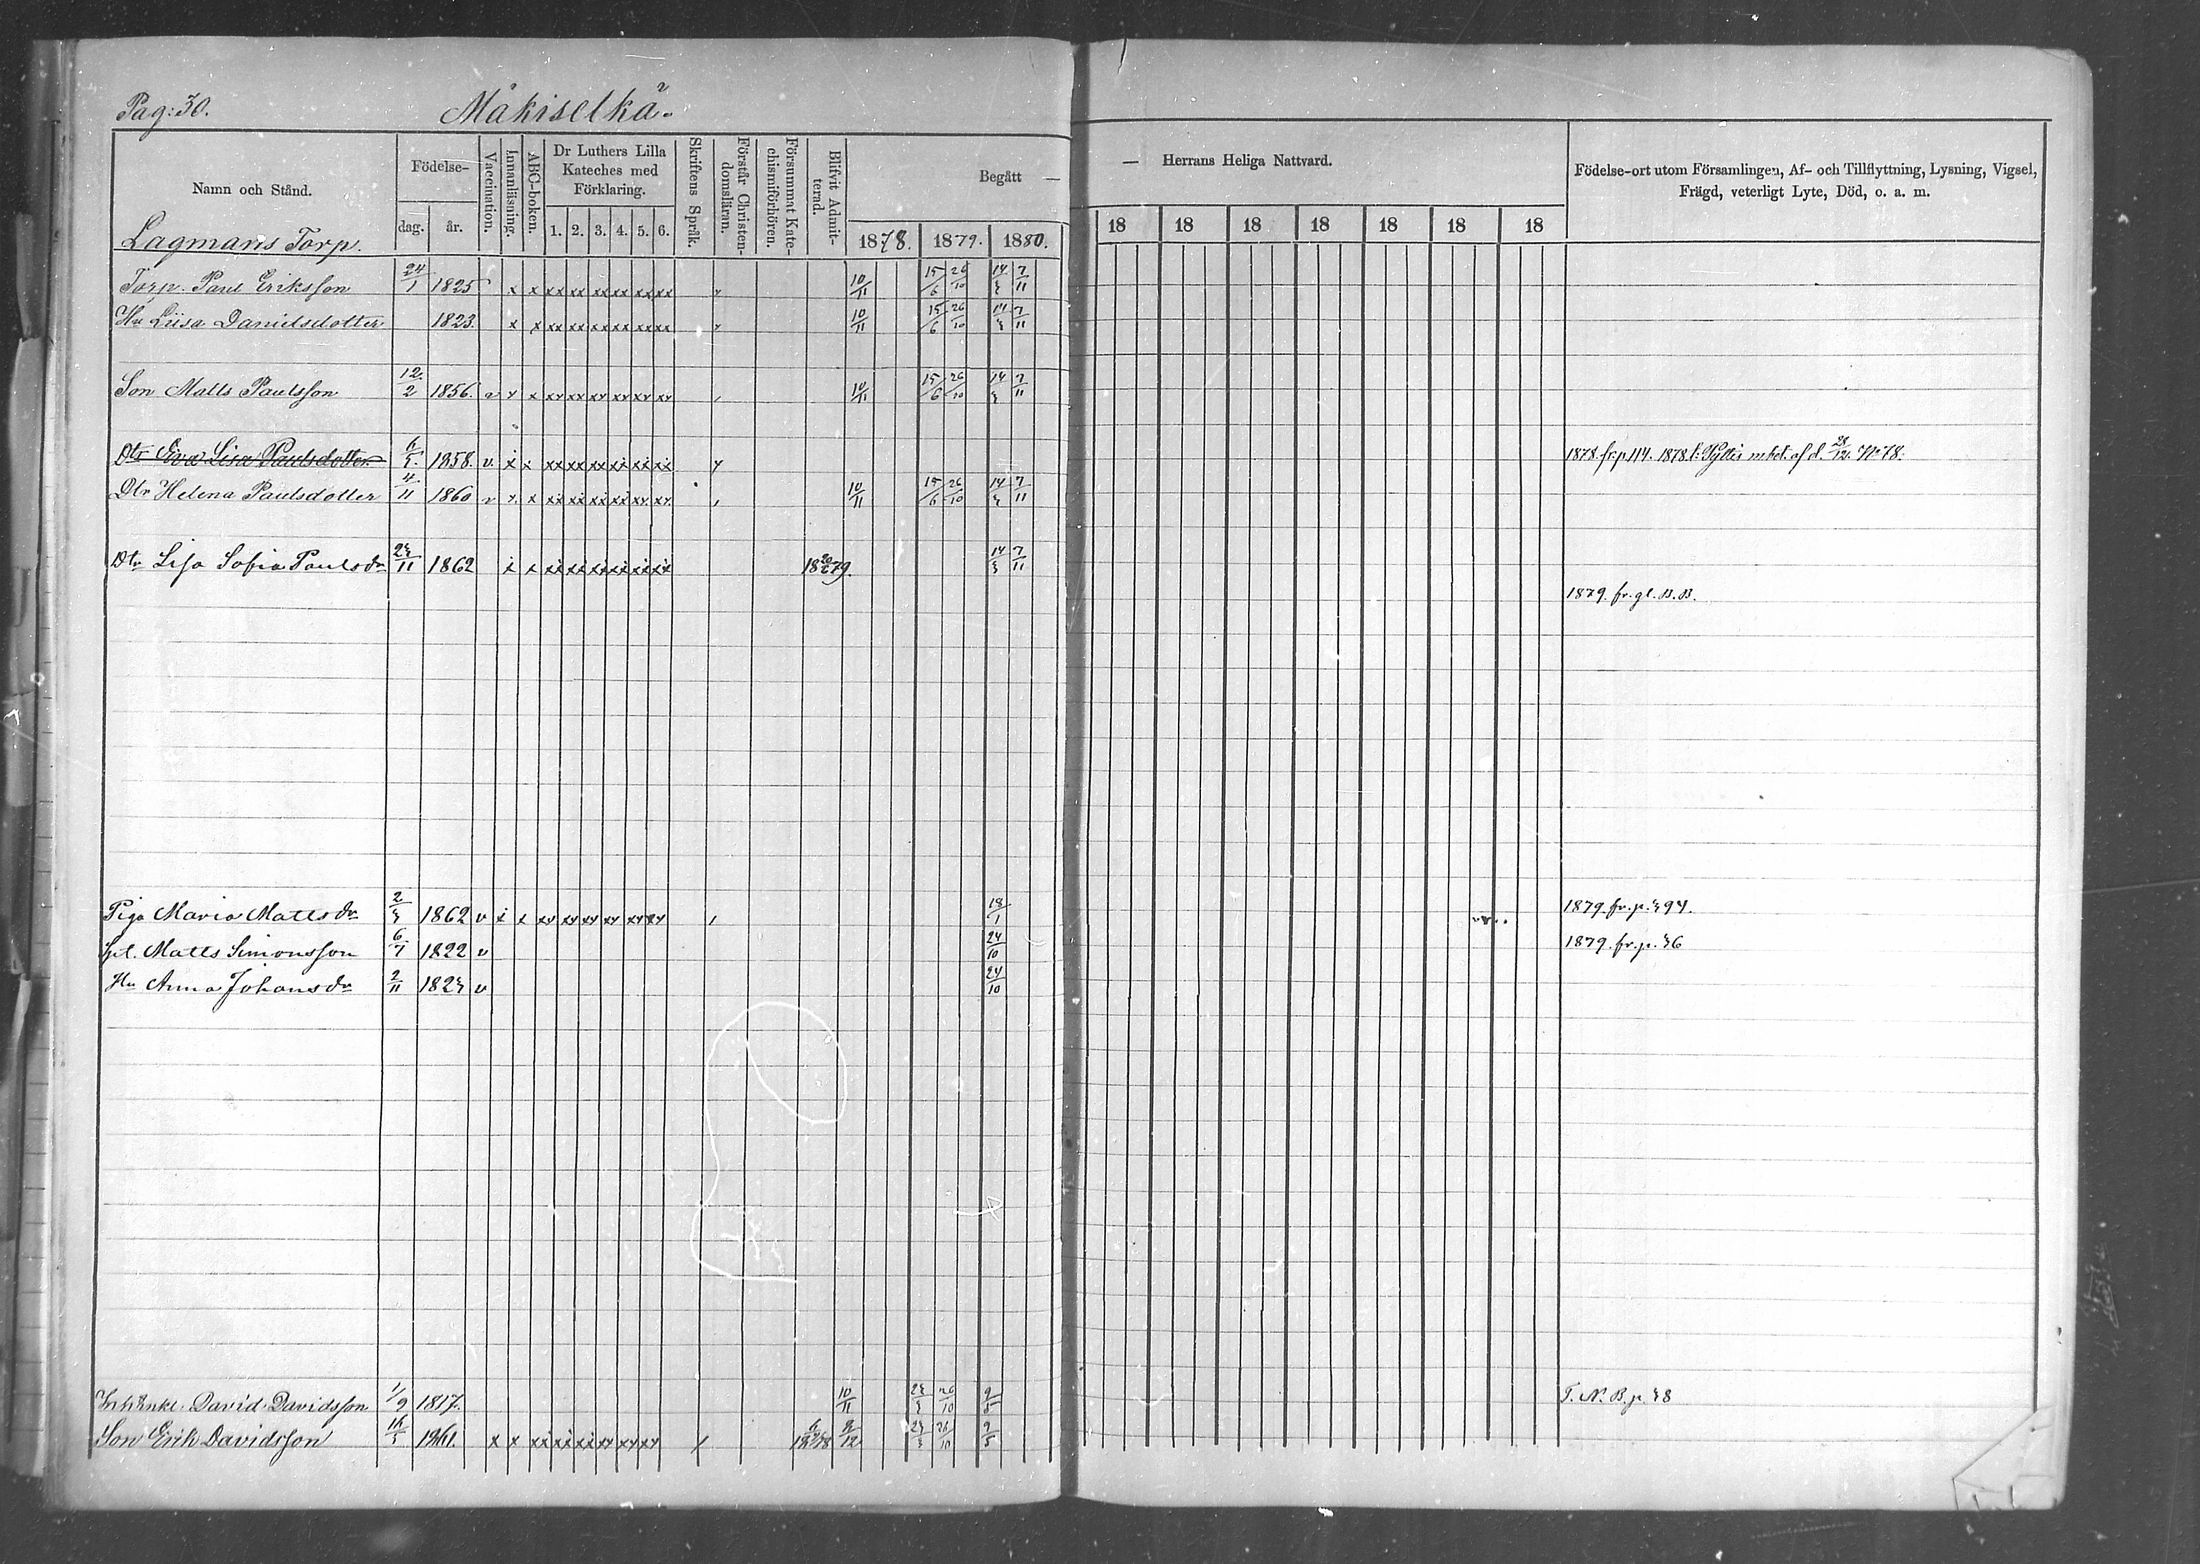 Pag: 30. Mäkiselkä.
Namn och Stånd. Födelse- dag. år. Vaccination. Innanläsning. ABC-boken. Dr Luthers Lilla Kateches med Förklaring. 1. 2. 3. 4. 5. 6. Skriftens Språk. Förstår Christendomsläran. Försummat Katechismiförhören. Blifvit Admitterad. Begått — — Herrans Heliga Nattvard. Födelse-ort utom Församlingen, Af- och Tillflyttning, Lysning, Vigsel, Frägd, veterligt Lyte, Död, o. a. m.
1878. 1879. 1880. 18 18 18 18 18 18 18
Lagmans Torp.
Torp. Paul Eriksson 24/1 1825 x x xx xx xx xx xx xx 10/11 15/6 26/10 14/3 7/11
Hu Liisa Danielsdotter 1823. x x xx xx xx xx xx xx 10/11 15/6 26/10 14/3 7/11
Son Matts Paulsson 12/2 1856. v x x xx xx xx xx xx xx 10/11 15/6 26/10 14/3 7/11
Dtr Eva Lisa Paulsdotter 1858. v x x xx xx xx xx xx xx 1878. fr. p 114. 1878 t. af d. 28/12 No 78.
Dtr Helena Paulsdotter 4/11 1860 v x x xx xx xx xx xx xx 10/11 15/6 26/10 14/3 7/11
Dtr Lisa Sofia Paulsdr 23/11 1862 x x xx xx xx xx xx xx 1879. 14/3 7/11
1879. fr. gl. B. B.
Piga Maria Mattsdr 2/3 1862 v x x xx xx xx xx xx xx 18/1 1879. fr. p. 394.
Matts Simonsson 6/7 1822 v 24/10 1879. fr. p. 36
Hu Anna Johansdr 2/11 1823 v 24/10
Inh. Enkl. David Davidsson 1/9 1817. 10/11 23/3 26/10 9/5 T. N. B. p. 38
Son Erik Davidsson 16/5 1861. x x xx xx xx xx xx xx 1878 8/12 23/3 26/10 9/5